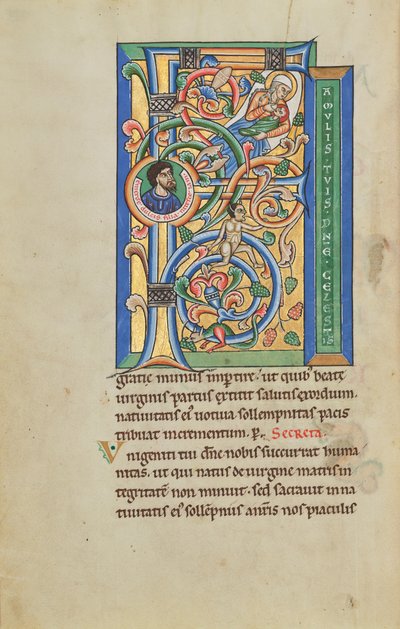 F
AMVLIS · TVIS · DNE · CELESTIS
gratie munus impertire · ut quib; beate
virginis partus extitit salutis exordium ·
nativitatis ei votiva sollempnitas pacis
tribuat incrementum · p. Secreta.
Unigeniti tui dne nobis succurrat huma
nitas · ut qui natus de virgine matris in
tegritatē non minuit · sed sacravit · in na
tivitatis ei sollēpniis a nris nos piaculis